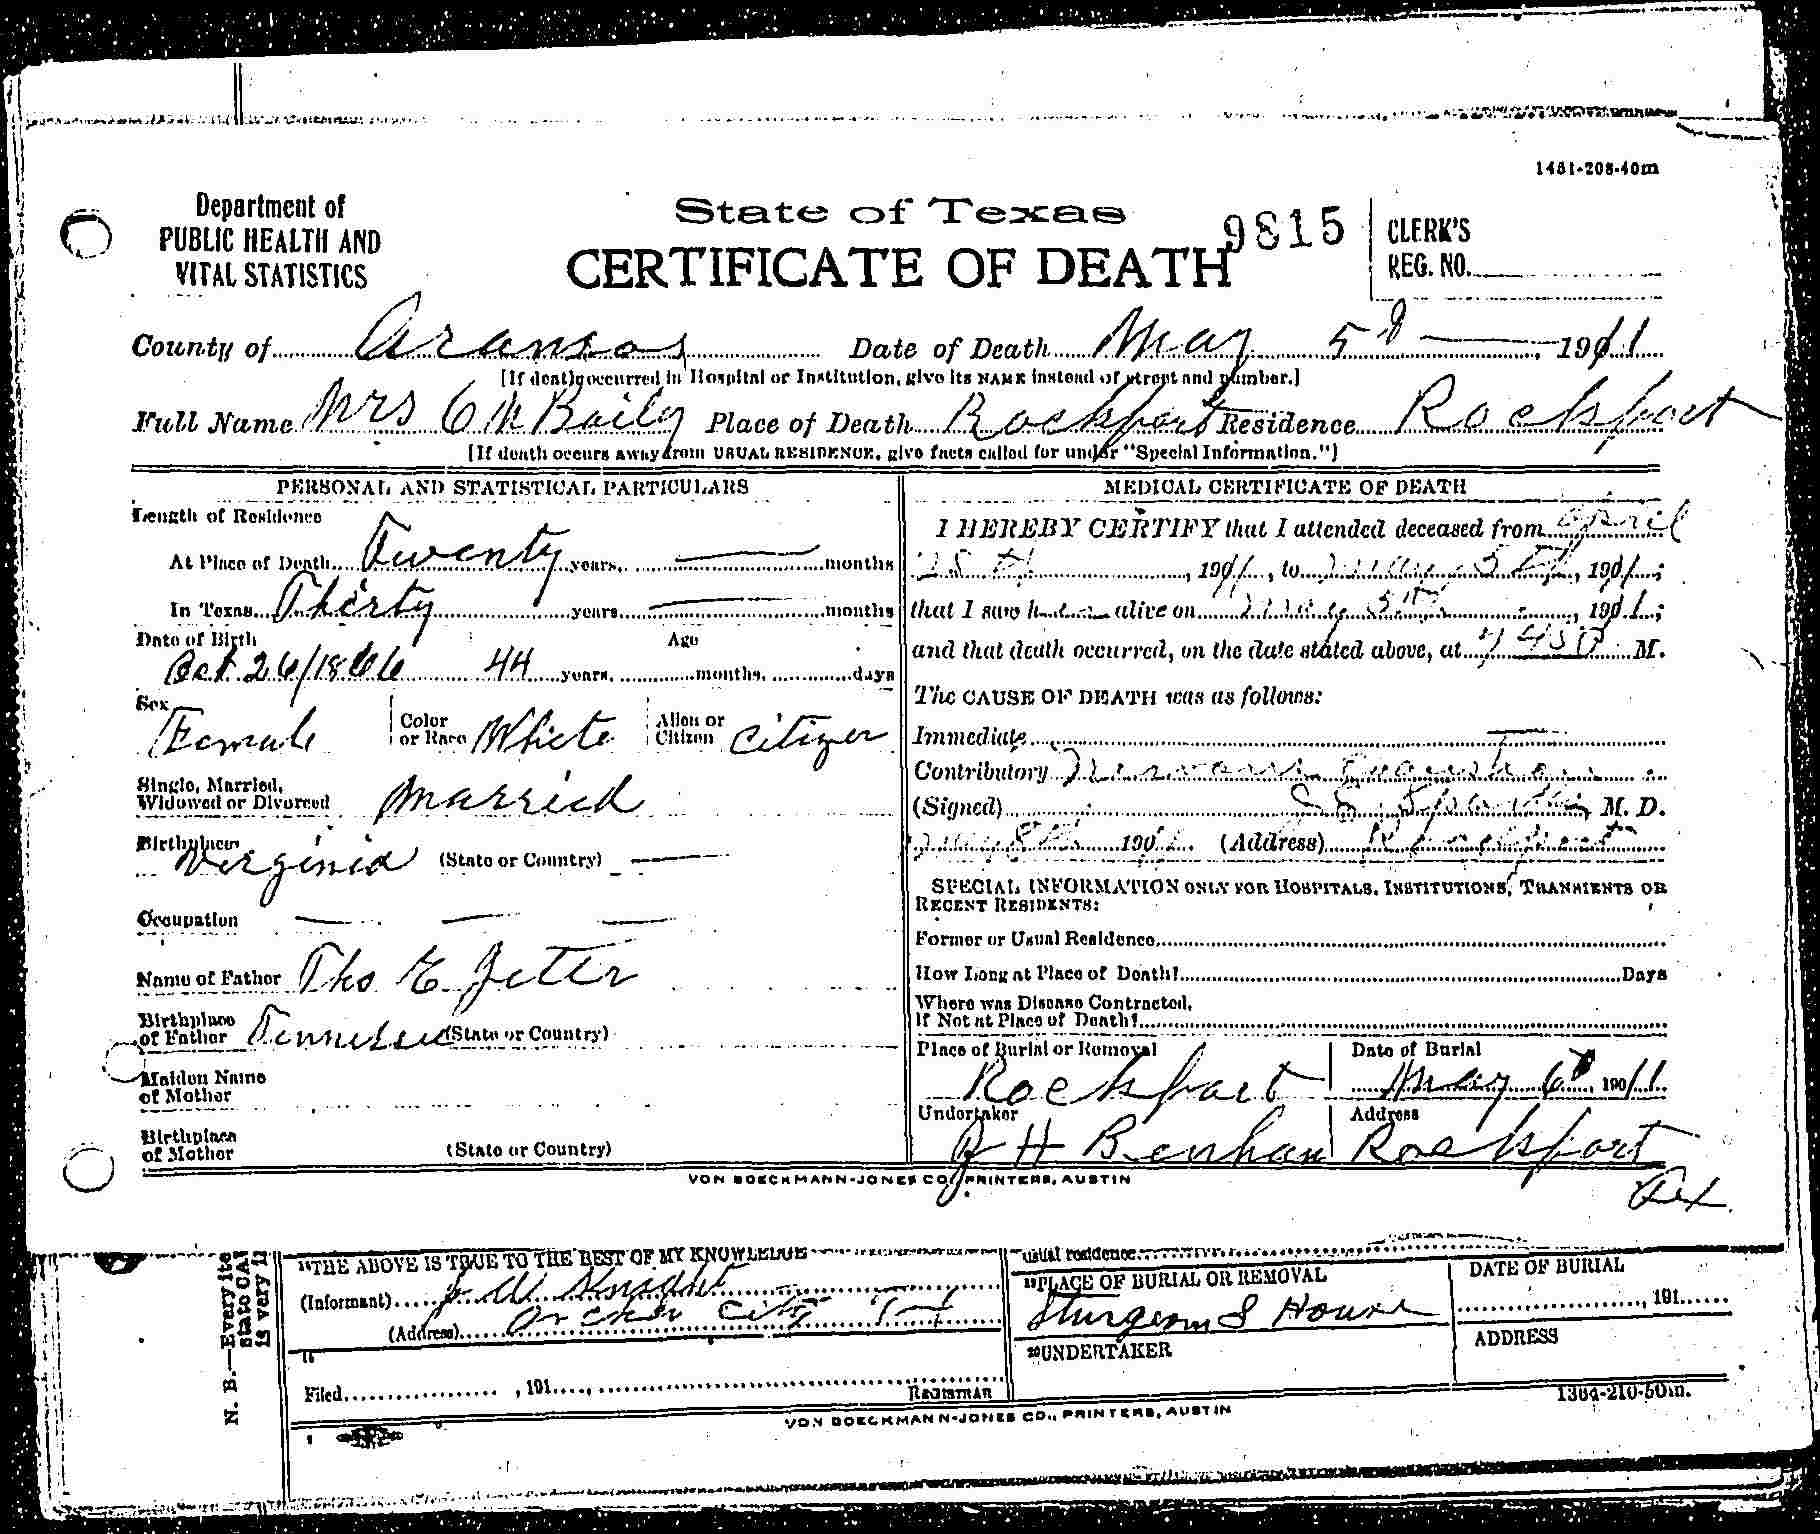 1451-208-40m
Department of
PUBLIC HEALTH AND
VITAL STATISTICS
State of Texas
CERTIFICATE OF DEATH
9815
CLERK'S
REG. NO.
County of Aransas Date of Death May 5th 1911
[If death occurred in Hospital or Institution, give its NAME instead of street and number.]
Full Name Mrs C M Baily Place of Death Rockport Residence Rockport
[If death occurs away from USUAL RESIDENCE, give facts called for under "Special Information."]
PERSONAL AND STATISTICAL PARTICULARS
Length of Residence
At Place of Death Twenty years, — months
In Texas Thirty years — months
Date of Birth Age
Oct 26/1866 44 years, months, days
Sex Female Color or Race White Alien or Citizen Citizen
Single, Married,
Widowed or Divorced Married
Birthplace Virginia (State or Country) —
Occupation — — —
Name of Father Tho E Jeter
Birthplace
of Father Tennessee (State or Country)
Maiden Name
of Mother
Birthplace
of Mother (State or Country)
MEDICAL CERTIFICATE OF DEATH
I HEREBY CERTIFY that I attended deceased from April
28th, 1911, to May 5th, 1911;
that I saw her alive on May 5th, 1911;
and that death occurred, on the date stated above, at M.
The CAUSE OF DEATH was as follows:
Immediate —
Contributory
(Signed) M. D.
May 8th 1911. (Address) Rockport
SPECIAL INFORMATION ONLY FOR HOSPITALS, INSTITUTIONS, TRANSIENTS OR
RECENT RESIDENTS:
Former or Usual Residence
How Long at Place of Death? Days
Where was Disease Contracted,
If Not at Place of Death?
Place of Burial or Removal Date of Burial
Rockport May 6th 1911
Undertaker Address
J H Benham Rockport
Tex
VON BOECKMANN-JONES CO., PRINTERS, AUSTIN
N. B.—Every ite
state CA
is very i
THE ABOVE IS TRUE TO THE BEST OF MY KNOWLEDGE
(Informant) J W Knight
(Address) Archer City
Filed , 191 REGISTRAR
usual residence
19PLACE OF BURIAL OR REMOVAL DATE OF BURIAL
Sturgeon S House , 191
20UNDERTAKER ADDRESS
1364-210-50m.
VON BOECKMANN-JONES CO., PRINTERS, AUSTIN